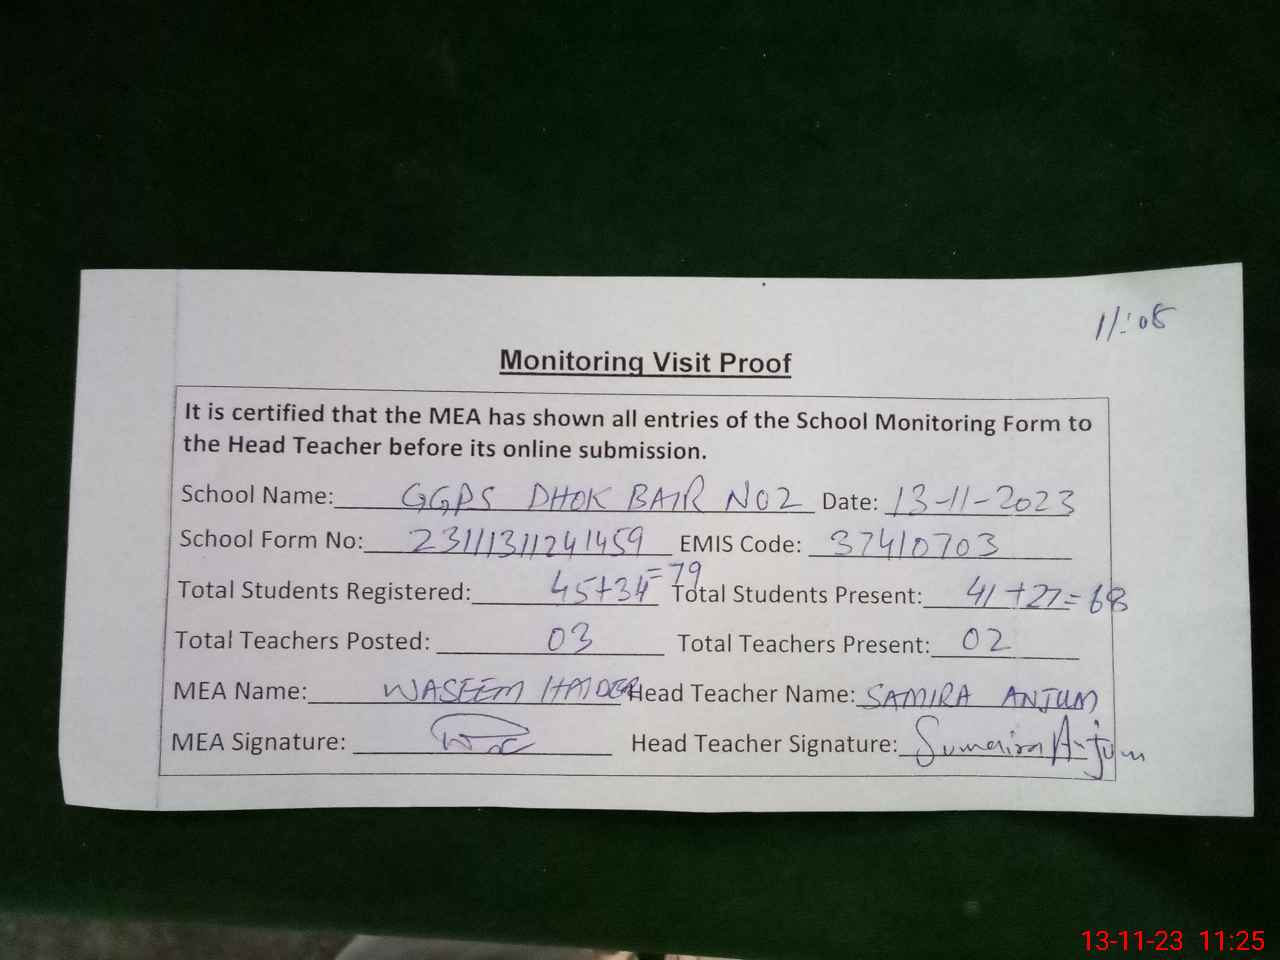 11:05
Monitoring Visit Proof
It is certified that the MEA has shown all entries of the School Monitoring Form to
the Head Teacher before its online submission.
School Name: GGPS DHOK BAIR NO2 Date: 13-11-2023
School Form No: 23111311241459 EMIS Code: 37410703
Total Students Registered: 45+34=79 Total Students Present: 41+27=68
Total Teachers Posted: 03 Total Teachers Present: 02
MEA Name: WASEEM HAIDER Head Teacher Name: SAMIRA ANJUM
MEA Signature: Head Teacher Signature: Sumaira Anjum
13-11-23 11:25